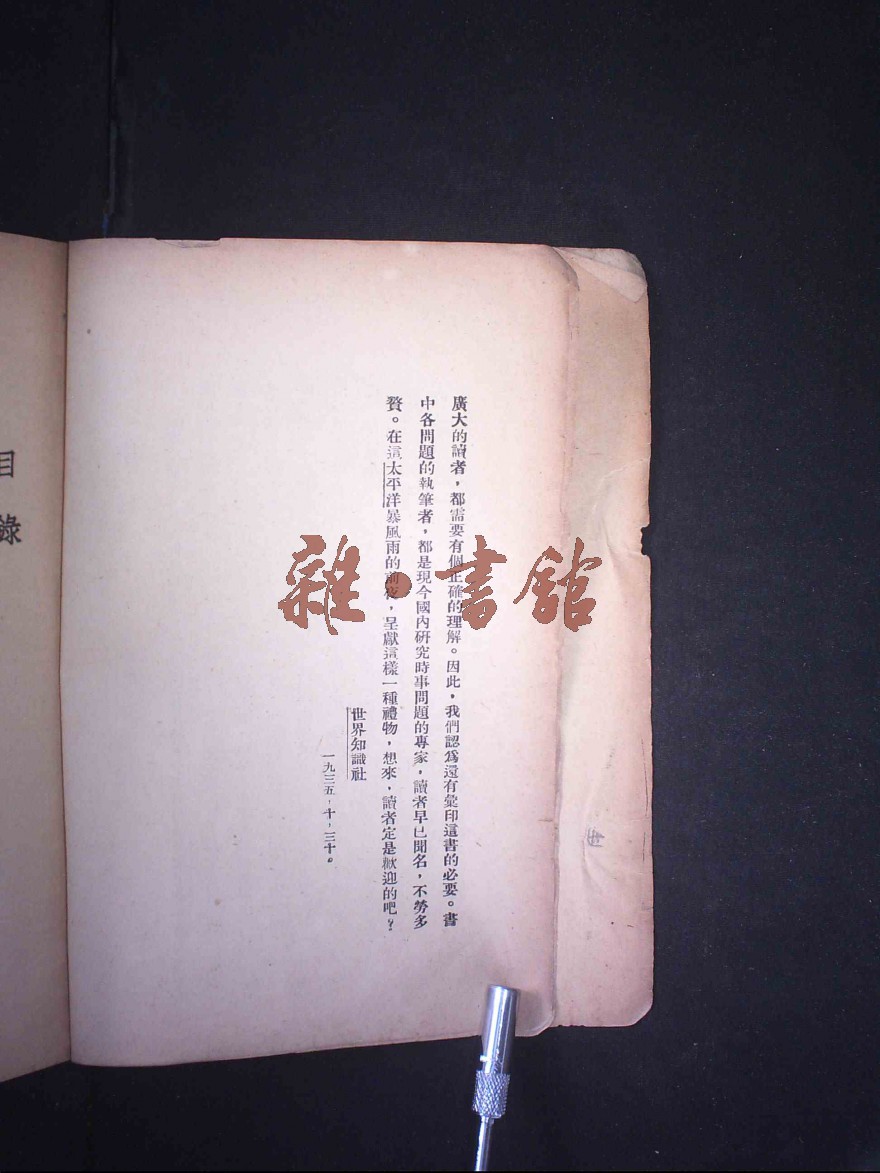 廣大的讀者，都需要有個正確的理解。因此，我們認爲還有彙印這書的必要。書
中各問題的執筆者，都是現今國內研究時事問題的專家，讀者早已聞名，不勞多
贅。在這太平洋暴風雨的前夜，呈獻這樣一種禮物，想來，讀者定是歡迎的吧？
世界知識社
一九三五，十，三十。
目錄
雜·書館